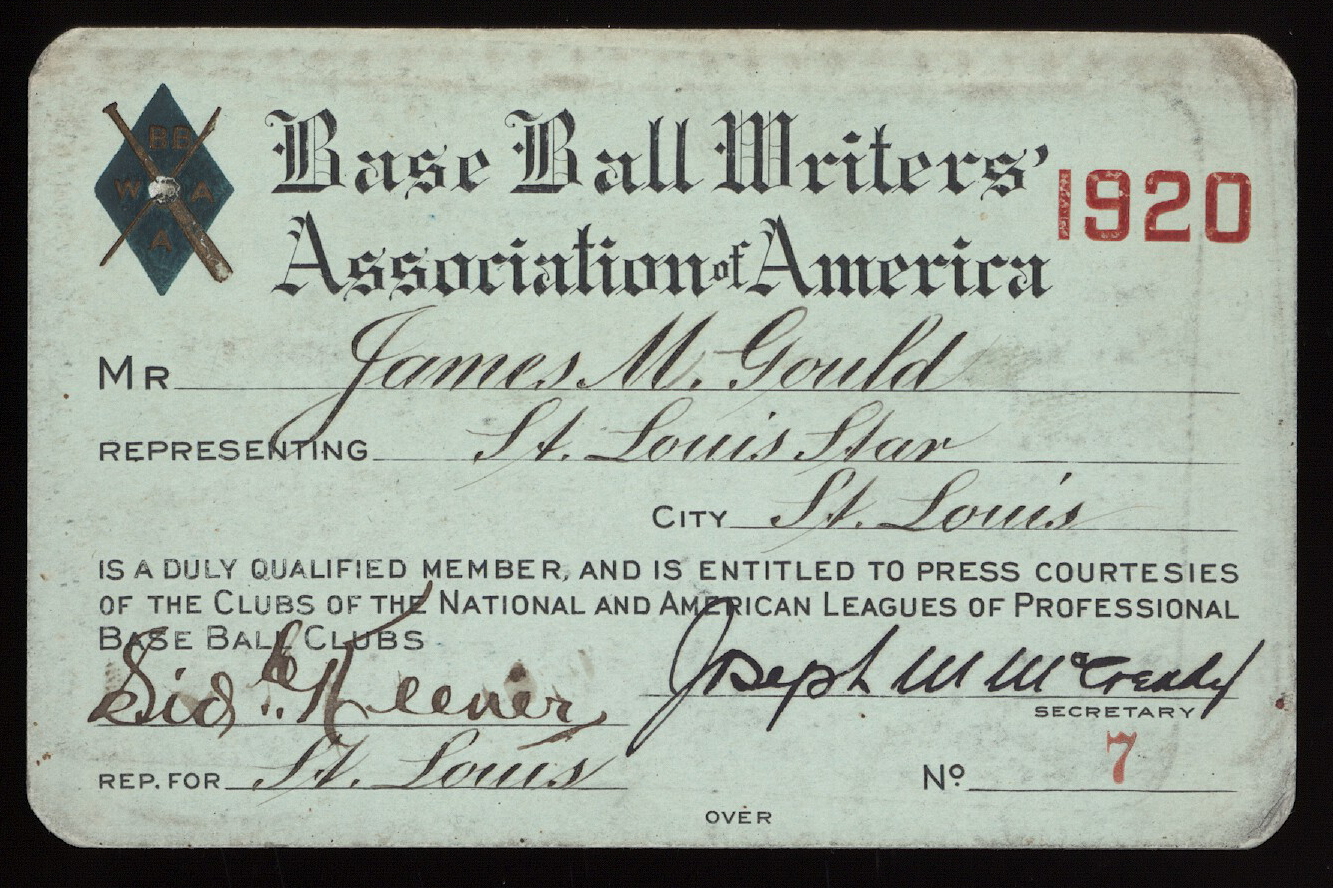 BB
W A
A
Base Ball Writers'
Association of America
1920
MR James M. Gould
REPRESENTING St. Louis Star
CITY St. Louis
IS A DULY QUALIFIED MEMBER, AND IS ENTITLED TO PRESS COURTESIES
OF THE CLUBS OF THE NATIONAL AND AMERICAN LEAGUES OF PROFESSIONAL
BASE BALL CLUBS
Sid C. Keener
Joseph M McCready
SECRETARY
REP. FOR St. Louis
No. 7
OVER